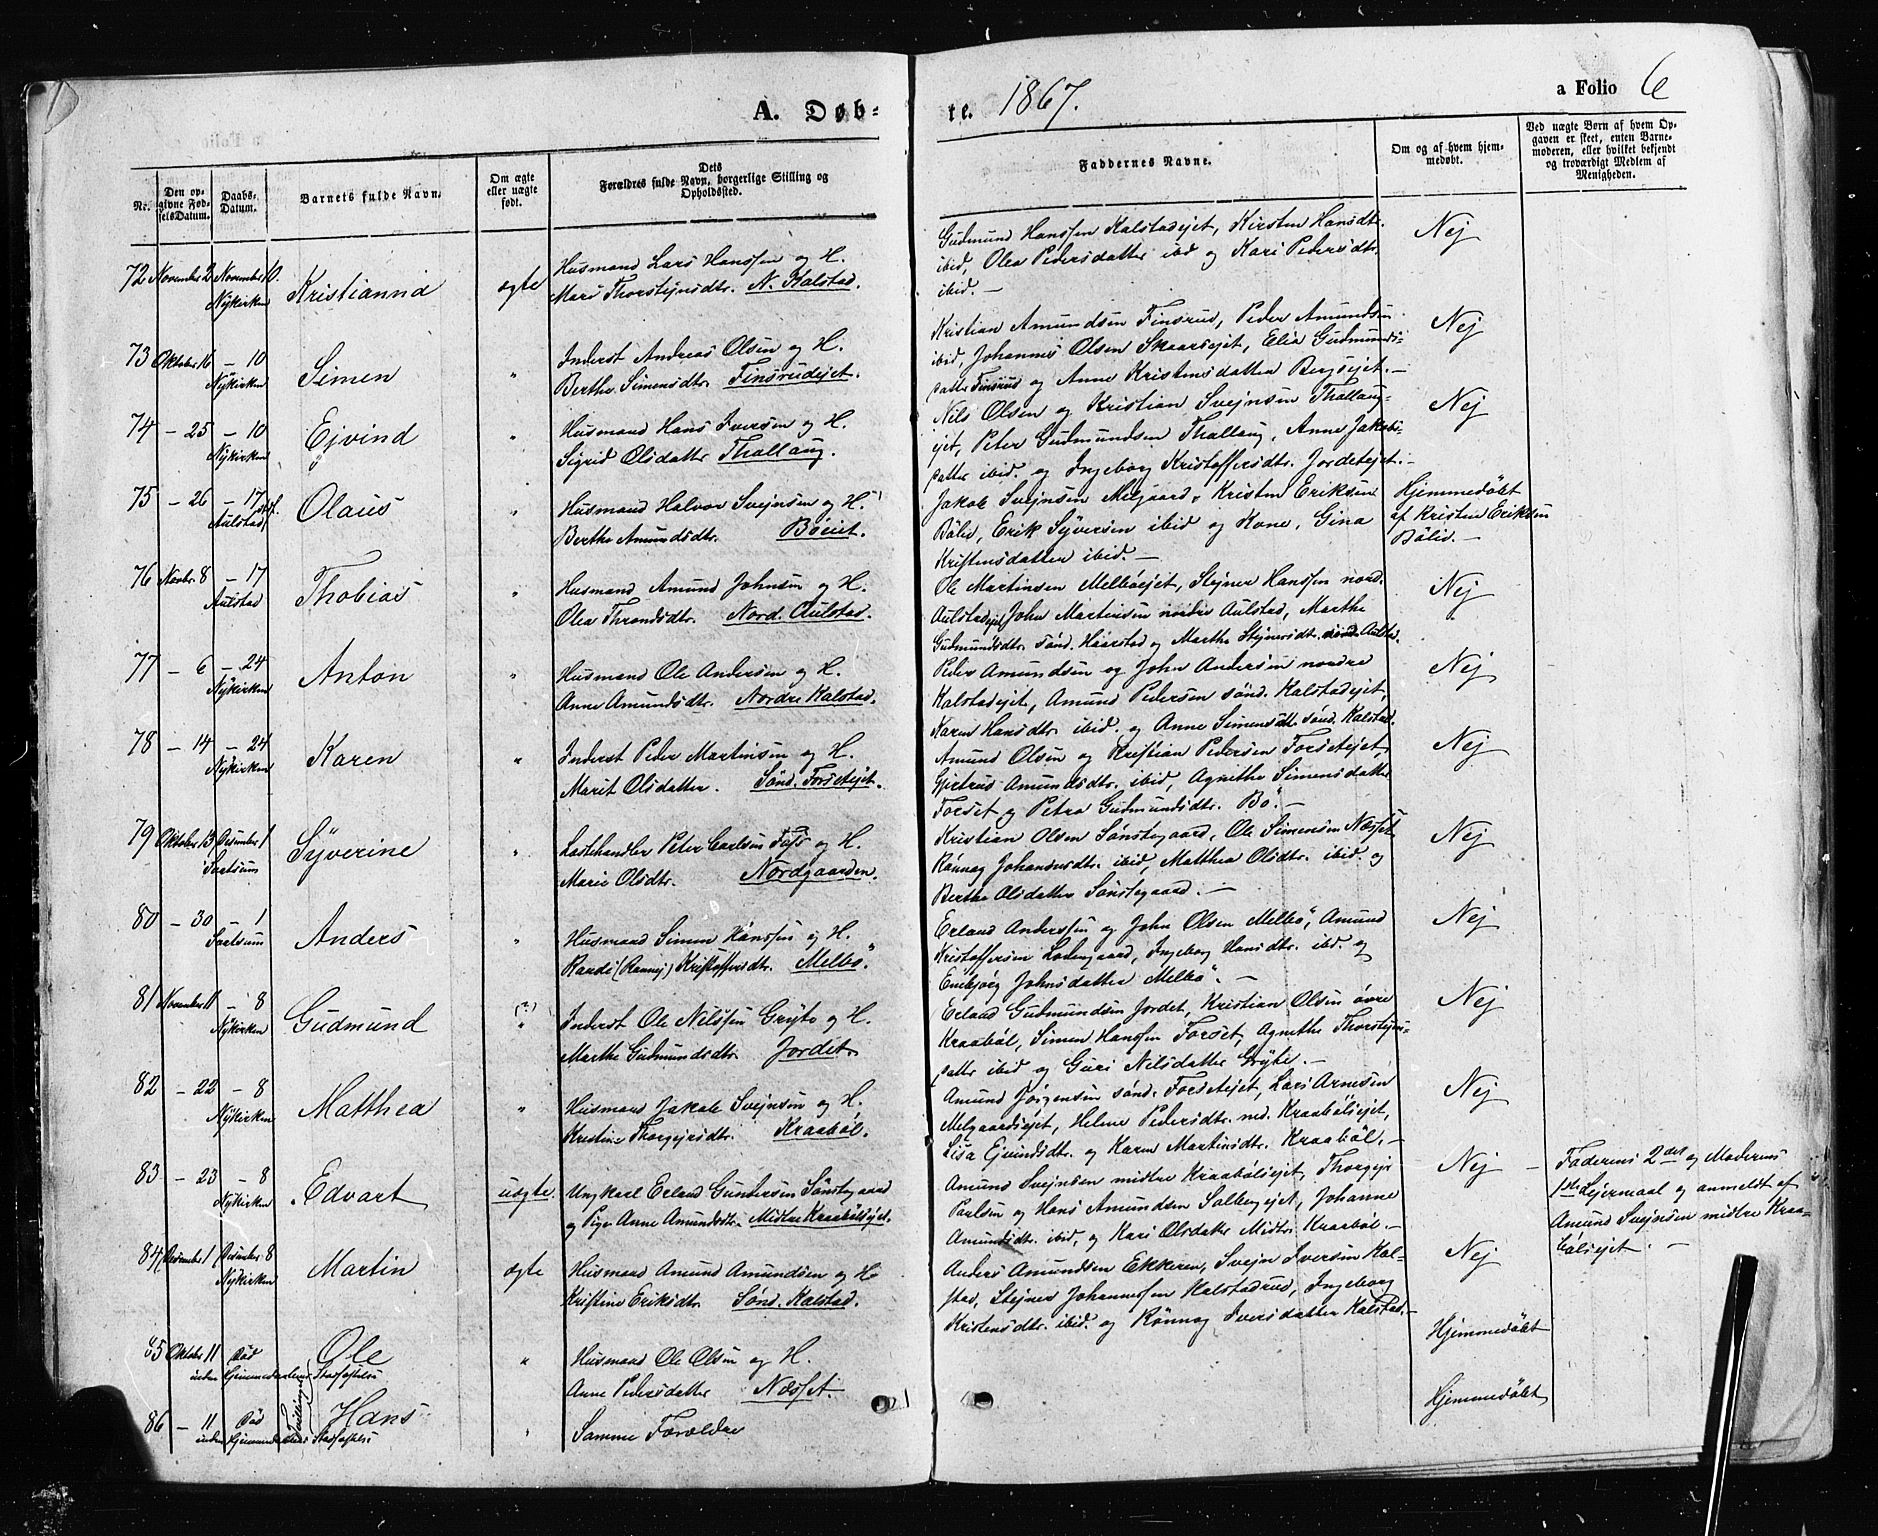 A. Døb-
te. 1867.
a Folio 6
Nr.
Den op-
givne Fød-
selsDatum.
Daabs-
Datum.
Barnets fulde Navn.
Om ægte
eller uægte
født.
Dets
Forældres fulde Navn, borgerlige Stilling og
Opholdssted.
Faddernes Navne.
Om og af hvem hjem-
medøbt.
Ved uægte Børn af hvem Op-
gaven er skeet, enten Barne-
moderen, eller hvilket bekjendt
og troværdigt Medlem af
Menigheden.
72 November 2 November 10. Nykirken Kristianna ægte
Husmand Lars Hanssen og H.
Mari Thorstejnsdtr. N. Kalstad.
Gudmund Hanssen Kalstadejet, Kirsten Hansdtr.
ibid, Olea Pedersdatter ibid og Kari Pedersdtr.
ibid. —
Nej
73 Oktober 16 — 10 Nykirken Simen "
Inderst Andreas Olsen og H.
Berthe Simensdtr. Finsrudejet.
Kristian Amundsen Finsrud, Peder Amundsen
ibid, Johannes Olsen Skaarsejet, Elia Gudmunds-
datter Finsrud og Anne Kristensdatter Bergsejet. —
Nej
74 — 25 — 10 Nykirken Ejvind "
Husmand Hans Iversen og H.
Sigrid Olsdatter Thallaug.
Nils Olsen og Kristian Svejnsen Thallaug-
ejet, Peter Gudmundsen Thallaug, Anne Jakobs-
datter ibid. og Ingeborg Kristoffersdtr. Jordetejet. —
Nej
75 — 26 — 17 Aulstad Olaus "
Husmand Halvor Svejnsen og H.
Berthe Amundsdtr. Böeiet.
Jakob Svejnsen Melgaard, Kristen Eriksen
Bölid, Erik Syversen ibid og Kone, Gina
Kristensdatter ibid. —
Hjemmedöbt
af Kristen Eriksen
Bölid. —
76 Novbr. 8 — 17 Aulstad Thobias "
Husmand Amund Johnsen og H.
Olea Throndsdtr. Nord. Aulstad.
Ole Martinsen Melböejet, Stejner Hanssen nord.
Aulstadejet John Martinsen nordre Aulstad, Marthe
Gudmundsdtr. sönd. Haarstad og Marthe Stejnersdtr. Aulstad.
Nej
77 — 6 — 24 Nykirken Anton "
Husmand Ole Andersen og H.
Anne Amundsdtr. Nordre Kalstad.
Peder Amundsen og John Andersen nordre
Kalstadejet, Amund Pedersen sönd. Kalstadejet,
Karen Hansdtr. ibid. og Anne Simensdtr. sönd. Kalstad.
Nej
78 — 14 — 24 Nykirken Karen "
Inderst Peder Martinsen og H.
Marit Olsdatter. Sönd. Forsetejet.
Amund Olsen og Kristian Pedersen Forsetejet,
Gjertrud Amundsdtr. ibid, Agnethe Simensdatter
Forset og Petra Gudmundsdtr. Bö. —
Nej
79 Oktober 13 Desember 1 Syverine "
Lastehandler Peter Carlsen Foss og H.
Marie Olsdtr. Nordgaarden.
Kristian Olsen Sönstegaard, Ole Simensen Næsset
Rönnag Johansensdtr. ibid, Matthea Olsdtr. ibid. og
Berthe Olsdatter Sönstegaard. —
Nej
80 — 30 — 1 Anders "
Husmand Simen Hanssen og H.
Randi (Rannej) Kristoffersdtr. Melbö.
Erland Anderssen og John Olsen Melbö, Amund
Kristoffersen Lodengaard, Ingeborg Hansdtr. ibid. og
Embjörg Johnsdatter Melbö. —
Nej
81 November 11 — 8 Nykirken Gudmund (?) "
Inderst Ole Nilssen Gryte og H.
Marthe Gudmundsdtr. Jordet.
Erland Gudmundsen Jordet, Kristian Olsen övre
Kraaböl, Simen Hanssen Forset, Agnethe Thorstejns-
datter ibid og Guri Nilsdatter Gryte. —
Nej
82 — 22 — 8 Nykirken Matthea "
Husmand Jakob Svejnsen og H.
Kristine Thorgejrsdtr. Kraaböl.
Amund Jörgensen sönd. Forsetejet, Lars Arnesen
Melgaardsejet, Helene Pedersdtr. ned. Kraabölsejet,
Lisa Ejvindsdtr. og Karen Martinsdtr. Kraaböl. —
Nej
83 — 23 — 8 Nykirken Edvart uægte.
Ungkarl Erland Gundersen Sönstegaard
og Pige Anne Amundsdtr. Midtre Kraabölsejet.
Amund Svejnsen midtre Kraabölsejet, Thorgejr
Paulsen og Hans Amundsen Solbergejet, Johanne
Amundsdtr. ibid, og Kari Olsdatter Midtre Kraaböl. —
Nej —
Faderens 2det og Moderens
1ste Lejermaal og anmeldt af
Amund Svejnsen midtre Kraa-
bölsejet. —
84 Desember 1 Desember 8 Nykirken Martin ægte
Husmand Amund Amundsen og H.
Kristine Eriksdtr. Sönd. Kalstad.
Anders Amundsen Ekkeren, Svejn Iversen Kal-
stad, Stejner Johannessen Kalstadrud, Ingeborg
Kristensdtr. ibid. og Rönnag Iversdatter Kalstad. —
Nej
85 Oktober 11 Död inden Hjemmedaabens Stadfæstelse Ole "
Husmand Ole Olsen og H.
Anne Pedersdatter Næsset.
Hjemmedöbt
Tvillinger
86 — 11 Död inden Hjemmedaabens Stadfæstelse Hans "
Samme Forældre
Hjemmedöbt